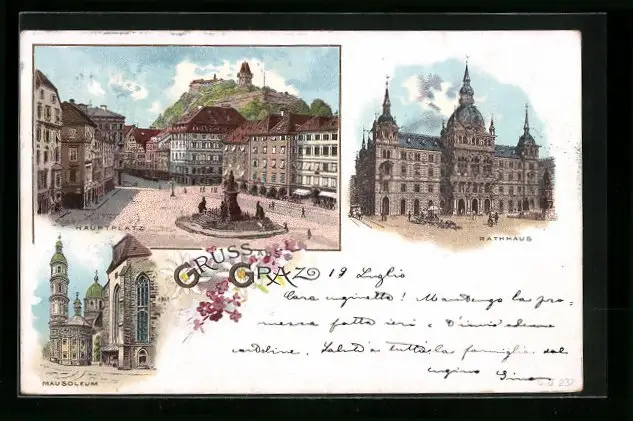 HAUPTPLATZ
RATHHAUS
GRUSS AUS GRAZ
MAUSOLEUM
19 Luglio
Cara cuginetta! Mantengo la pro-
messa fatta ieri e T'invio alcune
cartoline. Saluta tutta la famiglia dal
cugino Gino